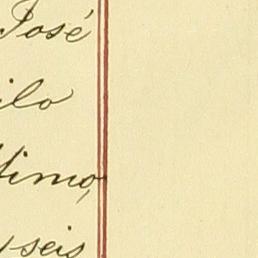 José
ilo
timo,
y seis